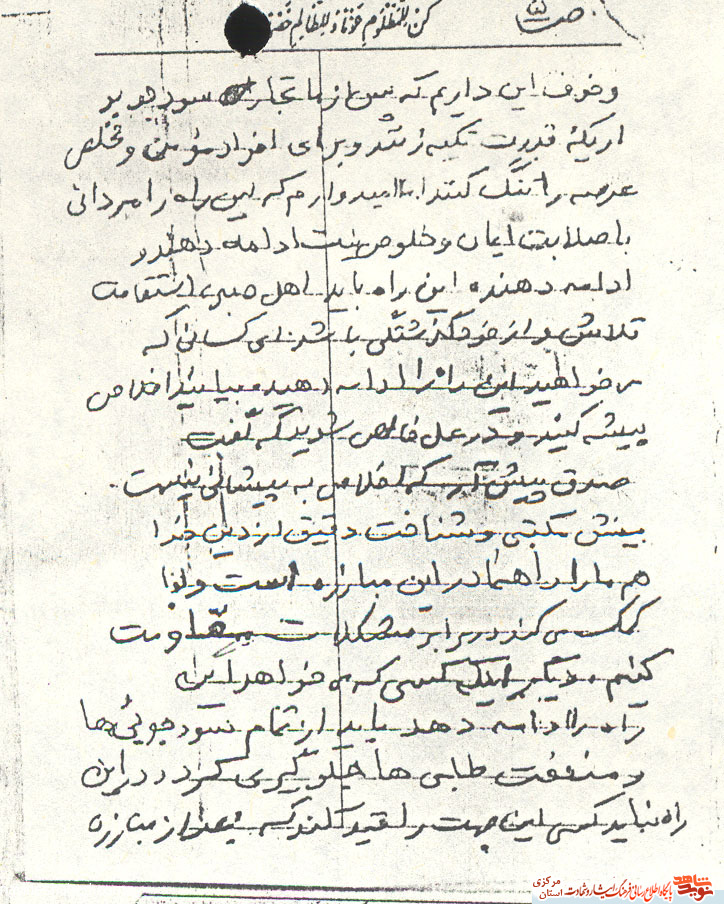 ص ۵
کن للمظلوم عونا و للظالم خصما
و خوف این داریم که پس از ما تجار سودجو بر
اریکهٔ قدرت تکیه زنند و برای افراد مؤمن و مخلص
عرصه را تنگ کنند اما امیدوارم که این راه را مردانی
با صلابت ایمان و خلوص نیت ادامه دهند و
ادامه دهنده این راه باید اهل صبر، استقامت
تلاش و از خود گذشتگی باشد ای کسانی که
می خواهید این راه را ادامه دهید بیائید اخلاص
پیشه کنید و در عمل خالص شوید که گفت
صدق پیش آر که اخلاص به پیشانی نیست
بینش مکتبی و شناخت دقیق از دین خدا
هم ما را راهنما در این مبارزه است و
کمک می کند در برابر مشکلات مقاومت
کنیم، دیگر اینکه کسی که می خواهد این
راه را ادامه دهد باید از تمام سودجوئی ها
و منفعت طلبی ها جلوگیری کرد در این
راه نباید کسی این جهت را قید کند که بعد از مبارزه
نوید شاهد
پایگاه اطلاع رسانی فرهنگ ایثار و شهادت استان مرکزی